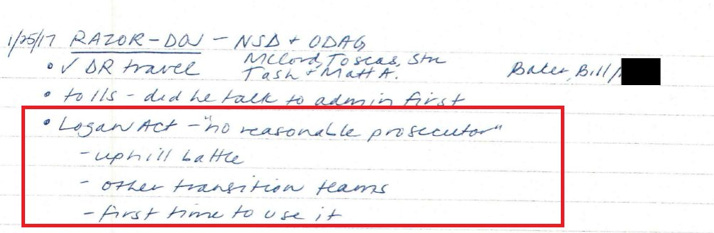 1/25/17 RAZOR-DOJ - NSD + ODAG
McCord, Toscas, Stu
Tash + Matt A.
Baker, Bill/
• √ DR travel
• tolls - did he talk to admin first
• Logan Act - "no reasonable prosecutor"
- uphill battle
- other transition teams
- first time to use it